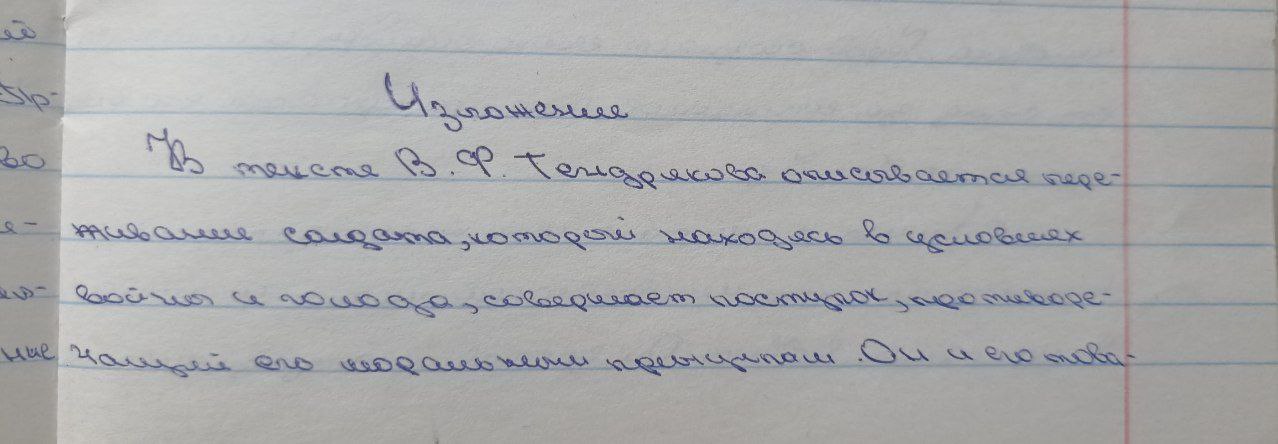 Изложение
В тексте В. Ф. Тендрякова описывается пере-
живание солдата, который находясь в условиях
войны и голода, совершает поступок, противоре-
чащий его моральным принципам. Он и его това-